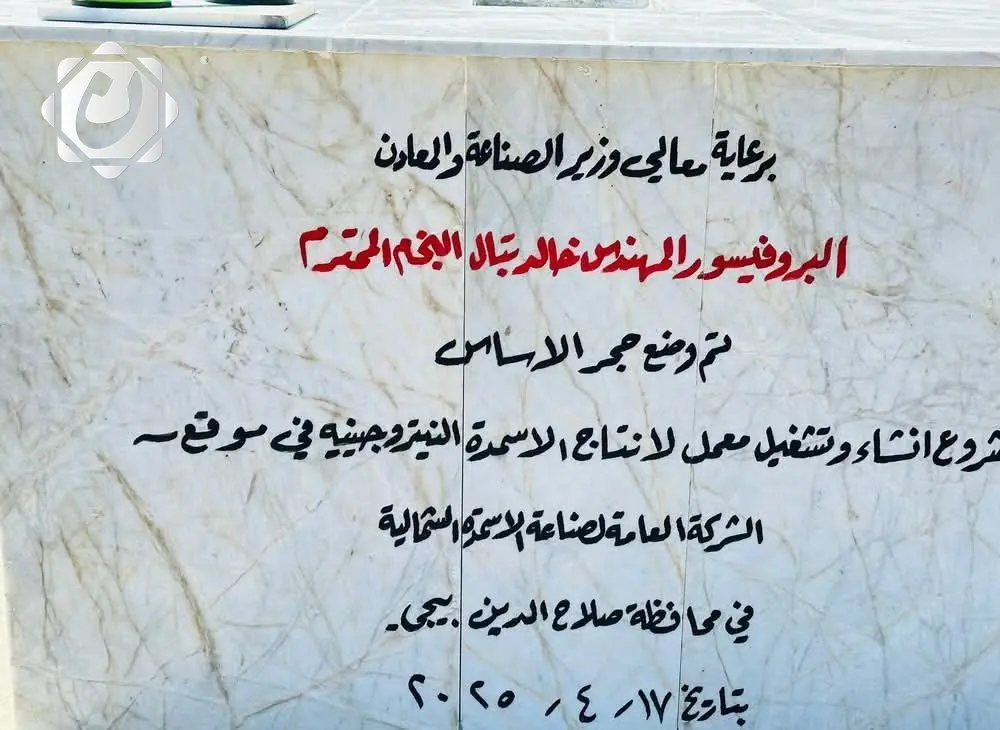 برعاية معالي وزير الصناعة والمعادن
البروفيسور المهندس خالد بتال النجم المحترم
تم وضع حجر الاساس
شروع انشاء وتشغيل معمل لانتاج الاسمدة النيتروجينيه في موقع
الشركة العامة لصناعة الاسمدة الشمالية
في محافظة صلاح الدين بيجي.
بتاريخ ١٧ / ٤ / ٢٠٢٥